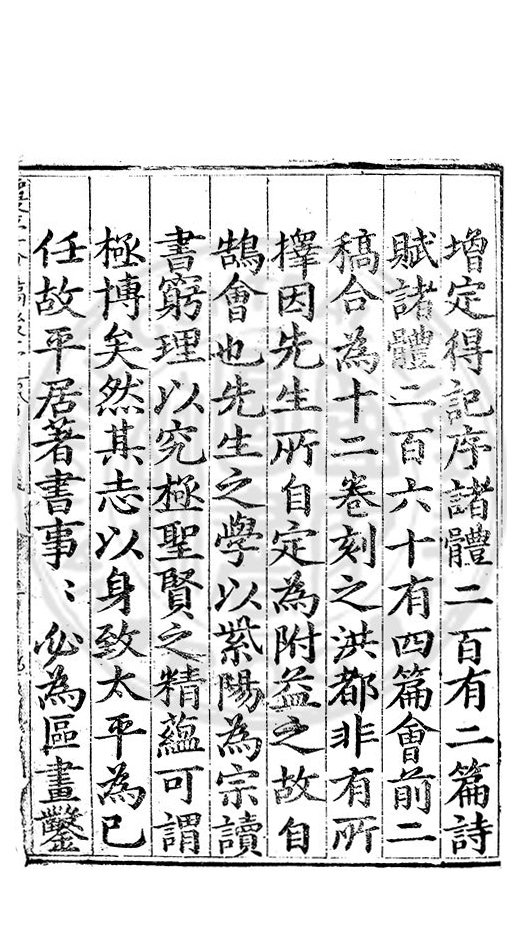 增定得記序諸體二百有二篇詩
賦諸體二百六十有四篇會前二
稿合為十二卷刻之洪都非有所
擇因先生所自定為附益之故自
鵠會也先生之學以紫陽為宗讀
書窮理以究極聖賢之精蘊可謂
極博矣然其志以身致太平為已
任故平居著書事〻必為區畫鑿